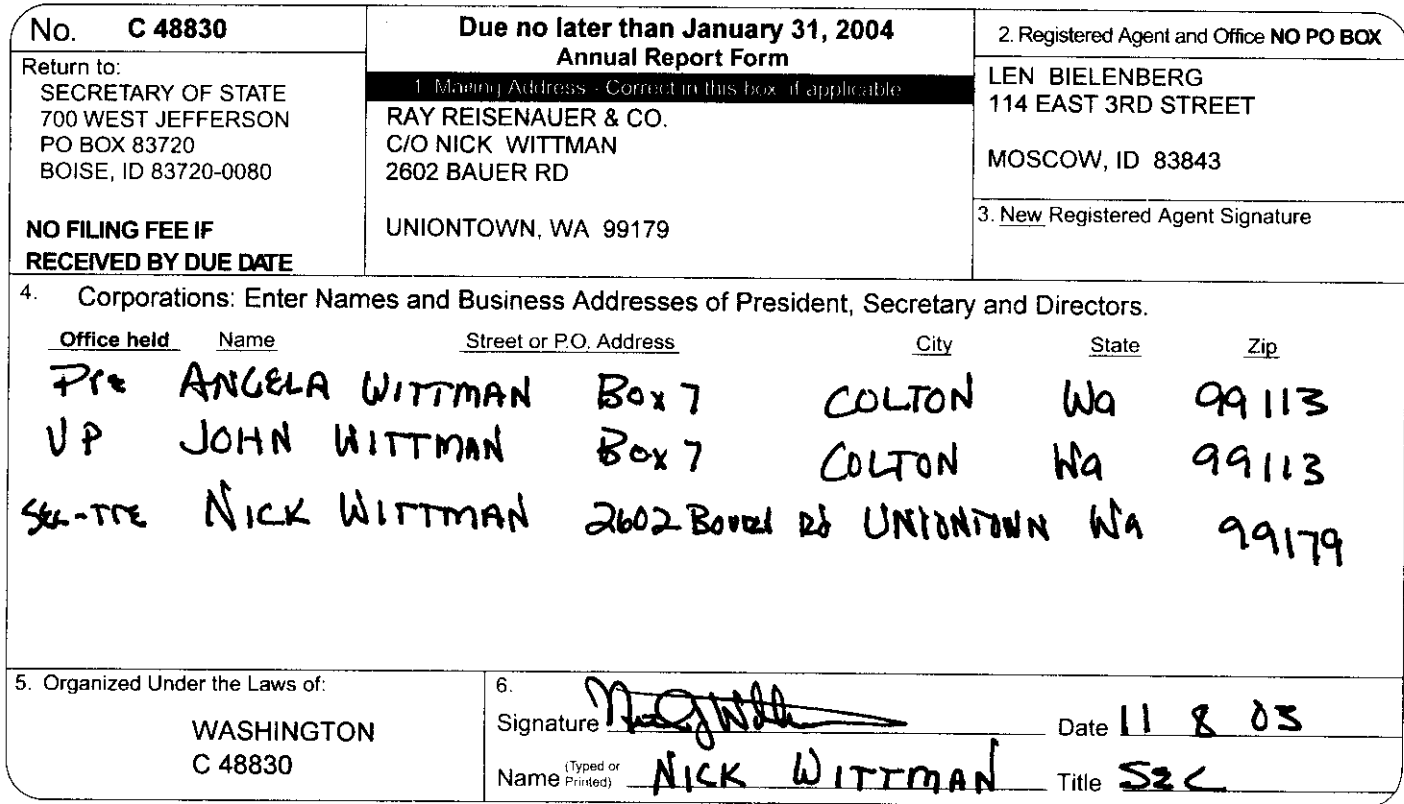 No. C 48830
Return to:
SECRETARY OF STATE
700 WEST JEFFERSON
PO BOX 83720
BOISE, ID 83720-0080
NO FILING FEE IF
RECEIVED BY DUE DATE
Due no later than January 31, 2004
Annual Report Form
1. Mailing Address - Correct in this box, if applicable
RAY REISENAUER & CO.
C/O NICK WITTMAN
2602 BAUER RD
UNIONTOWN, WA 99179
2. Registered Agent and Office NO PO BOX
LEN BIELENBERG
114 EAST 3RD STREET
MOSCOW, ID 83843
3. New Registered Agent Signature
4. Corporations: Enter Names and Business Addresses of President, Secretary and Directors.
Office held Name Street or P.O. Address City State Zip
Pre ANGELA WITTMAN Box 7 COLTON Wa 99113
VP JOHN WITTMAN Box 7 COLTON Wa 99113
NICK WITTMAN 2602 Rd UNIONTOWN Wa 99179
5. Organized Under the Laws of:
WASHINGTON
C 48830
6.
Signature
Date 11 8 03
Name (Typed or Printed) NICK WITTMAN Title Sec